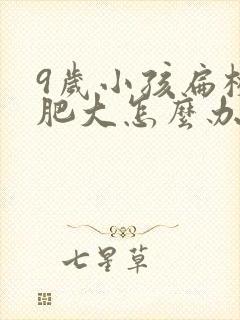 9歲小孩扁
肥大怎麼办
七星草